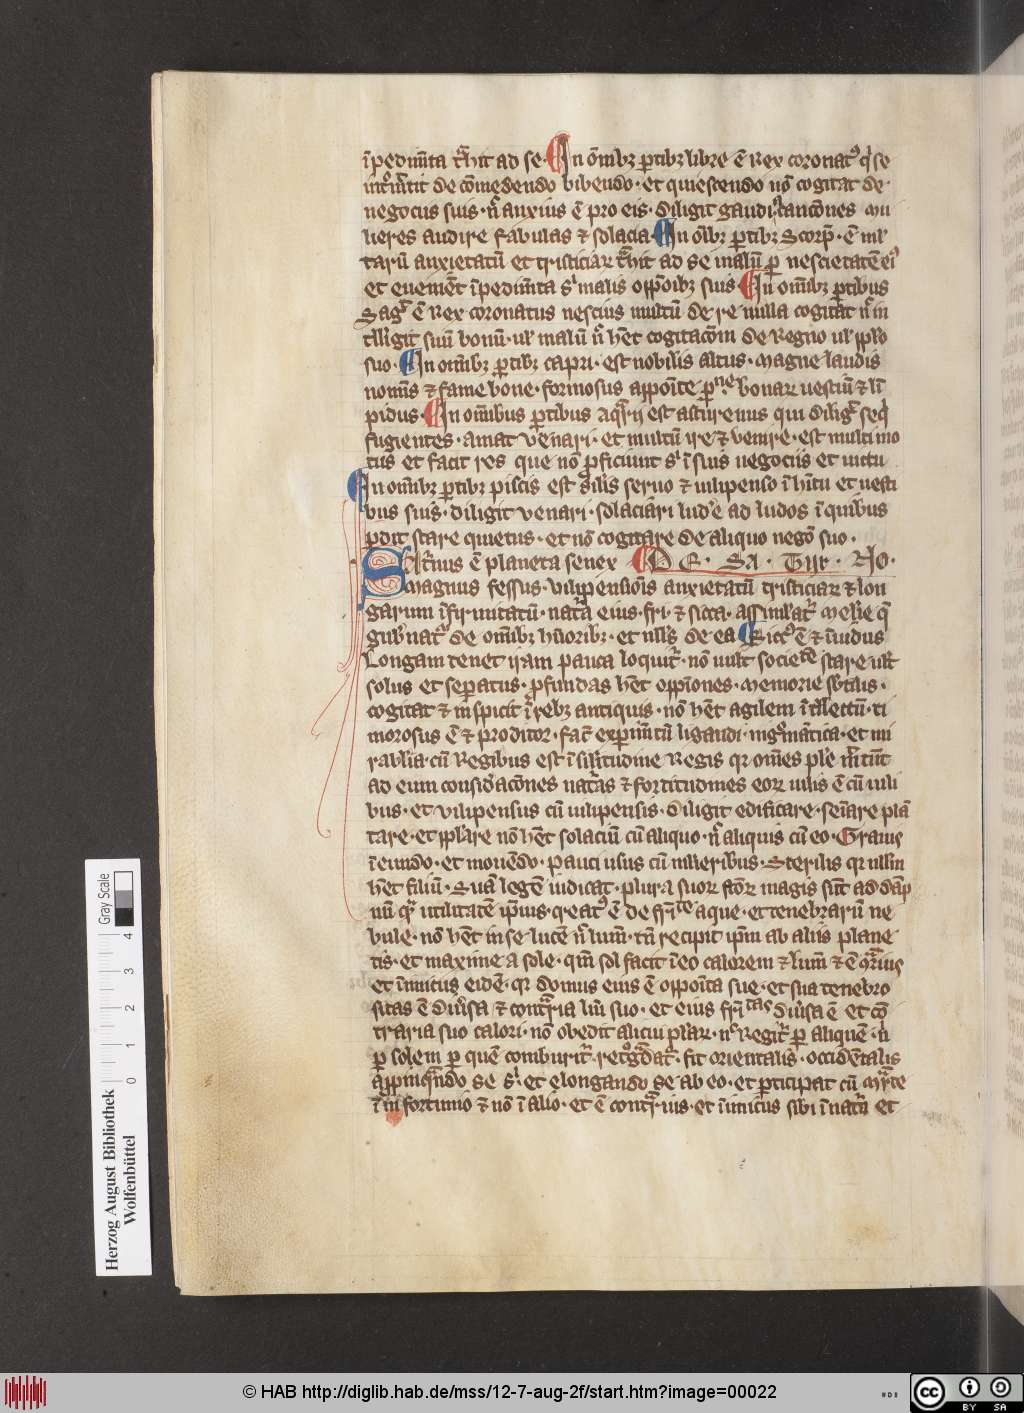 īpedim̄ta t͛hit ad se · In om̄ibꝫ ꝑtibꝫ libre ē Rex coronatꝰ q̇ se
de cōmedendo bibendo · et quiescendo nō cogitat de
negociis suis · n̄ anxius ē pro eis · diligit mu
lieres audire fabulas ⁊ solacia · In om̄ibꝫ ꝑtibꝫ Scorp̄ · ē ml̓
tarū anxietatū et tristiciaꝝ t͛hit ad se malū ꝑ nescietatē ei
et eveniēt īpedim̄ta s̓ malis suis · In om̄ibꝫ ꝑtibus
Sag̓ ē Rex coronatus nescius multū de re nulla cogitat n̄ in
tll̓igit suū bonū · ul̓ malū n̄ hēt cogitacōm de Regno ul̓ pplo
suo · In om̄ibꝫ ꝑtibꝫ capri · est nobilis altus · magne laudis
nom̄is ⁊ fame bone · formosus bonaꝝ vestiū ⁊ la
pidus · In om̄ibus ꝑtibus aq̓rij est qui seq̓
fugientes · amat venari · et multū ire ⁊ venire · est multi mo
tus et facit res que nō ꝓficiunt s̓ ī suis negociis et victu
In om̄ibꝫ ꝑtibꝫ piscis est sil̓is servo ⁊ vilipenso ī h̓itu et vesti
bus suis · diligit venari · solaciari lud̓e ad ludos ī quibus
ꝑdit stare quietus · et nō cogitare de aliquo nego̅ suo ·
Sat̓nus ē planeta senex DE · SA · TUR · NO ·
magnus fessus · vilipensiōis anxietatū tristiciaꝝ ⁊ lon
garum īfirmitatū · nat̓a eius · fri · ⁊ sicca · assimilat̓ mel̓ie q̄
gub̓nat̓ de om̄ibꝫ hūoribꝫ · et null̓s de ea ē ⁊ īvidus
Longam tenet iram pauca loquit̓ · nō vult societatē stare ult̓
solus et seꝑatus · ꝓfundas hēt oppiōnes · memorie sb̓talis ·
cogitat ⁊ inspicit ī rebꝫ antiquis · nō hēt agilem ītell̓ectū · ti
morosus ē ⁊ proditor · fac̄ exꝑim̄tū ligandi · nigromātica · et mi
rabl̓ia · cū Regibus est ī sil̓itudine Regis qr om̄es
ad eum consid̓acōnes nat̓as ⁊ fortitudines eoꝝ vilis ē cū vili
bus · et vilipensus cū vilipensis · diligit edificare · semīare plā
tare · et pplare nō hēt solaciū cū aliquo · n̄ aliquis cū eo · Gravis
ī eundo · et movēdo · pauci usus cū mulieribus · Sterilis qr nullū
hēt filiū · Suā legē iudicat · plura suoꝝ fc̄oꝝ magis sūt ad dāp
nū qr̓ utilitatē ip̄ius · creatꝰ ē de fri͛te aque · et tenebraꝝ ne
bule · nō hēt in se lucē n̄ lum̄ · tn̄ recipit ip̄m ab aliis plane
tis · et maxime a sole · qm̄ sol facit ī eo calorem ⁊ lum̄ ⁊ ē
et īimicus eidē · qr domus eius ē oppoīta sue · et sua tenebro
sitas ē div̓sa ⁊ cont͛ria lūi suo · et eius fri͛tas div̓sa ē et cō
traria suo calori · nō obedit alicui plan̄ · nc̄ Regit̓ ꝑ aliquē · n̄
ꝑ solem ꝑ quē comburit̓ · ret͛ogradat̓ · fit orientalis · occidētalis
appīquādo se s̓ · et elongando se ab eo · et ꝑticipat cū m̓rte
ī infortunio ⁊ nō ī alio · et ē cont͛rius · et īimicus sibi ī nat̓a et
Herzog August Bibliothek
Wolfenbüttel
0 1 2 3 4
Gray Scale
© HAB http://diglib.hab.de/mss/12-7-aug-2f/start.htm?image=00022
cc BY SA